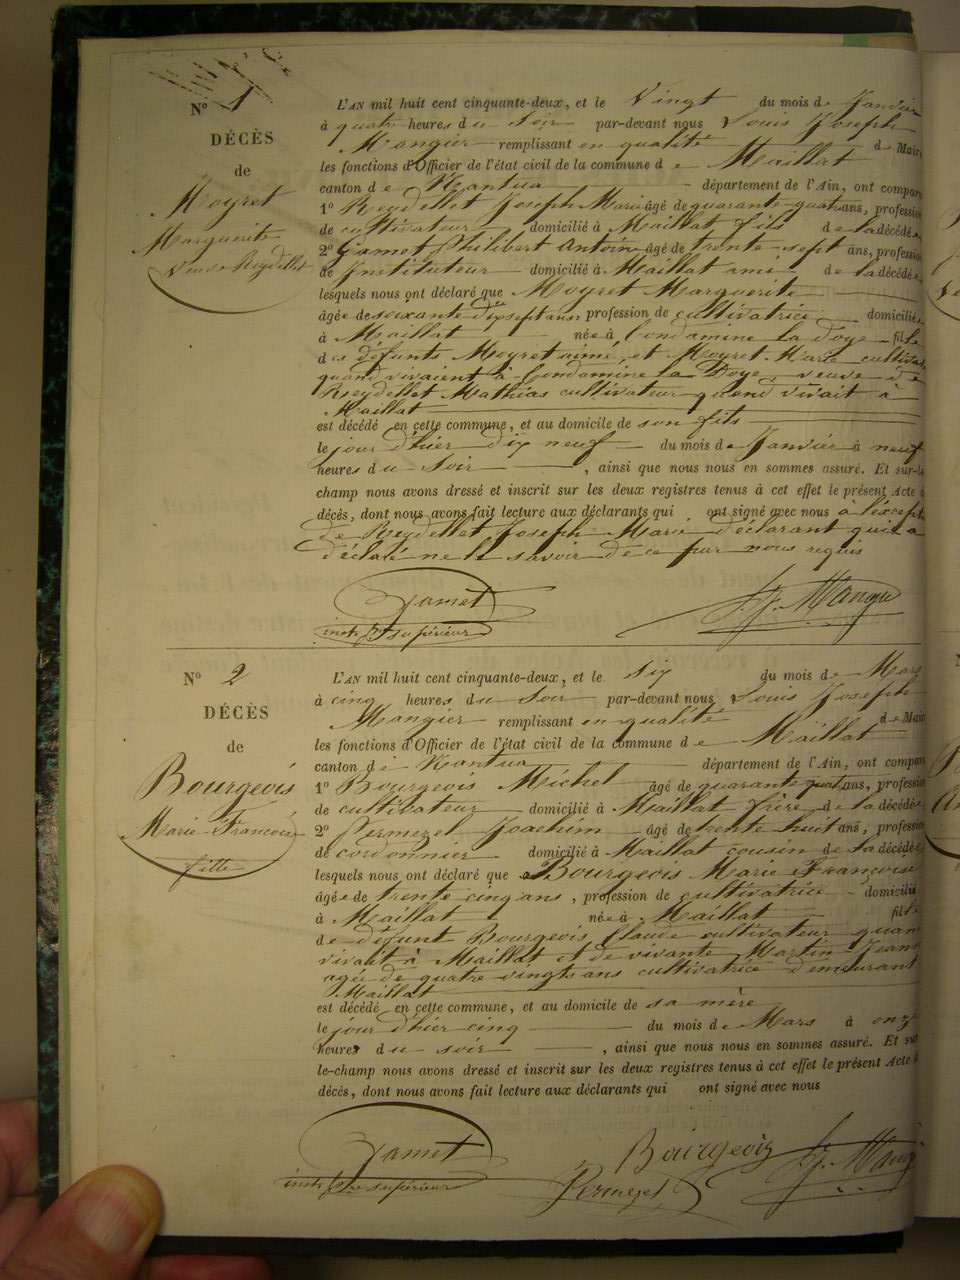 N° 1
DÉCÈS
de
Moyret
Marguerite
Veuve Reydellet
L'AN mil huit cent cinquante-deux, et le Vingt du mois de Janvier
à quatre heures du Soir par-devant nous Louis Joseph
Mangier remplissant en qualité de Maire
les fonctions d'Officier de l'état civil de la commune de Maillat
canton de Nantua département de l'Ain, ont comparu
1° Reydellet Joseph Marie âgé de quarante-quatre ans, profession
de cultivateur domicilié à Maillat fils de la décédée
2° Gamet Philibert Antoine âgé de trente-sept ans, profession
de Instituteur domicilié à Maillat ami de la décédée
lesquels nous ont déclaré que Moyret Marguerite
âgée de soixante dix sept ans, profession de cultivatrice domiciliée
à Maillat née à Condamine la Doye fille
des défunts Moyret aimé, et Moyret Marie cultivat
quand vivaient à Condamine la Doye, veuve de
Reydellet Mathias cultivateur quand vivait à
Maillat
est décédé en cette commune, et au domicile de son fils
le jour d'hier dix neuf du mois de Janvier à neuf
heures du Soir , ainsi que nous nous en sommes assuré. Et sur-le
champ nous avons dressé et inscrit sur les deux registres tenus à cet effet le présent Acte de
décès, dont nous avons fait lecture aux déclarants qui ont signé avec nous à l'except
de Reydellet Joseph Marie déclarant qui a
déclaré ne le savoir de ce par nous requis
Gamet
instr re supérieur
L. J. Mangie
N° 2
DÉCÈS
de
Bourgeois
Marie Françoise
fille
L'AN mil huit cent cinquante-deux, et le six du mois de Mars
à cinq heures du Soir par-devant nous Louis Joseph
Mangier remplissant en qualité de Maire
les fonctions d'Officier de l'état civil de la commune de Maillat
canton de Nantua département de l'Ain, ont comparu
1° Bourgeois Michel âgé de quarante quatre ans, profession
de cultivateur domicilié à Maillat frère de la décédée
2° Permezel Joachim âgé de trente huit ans, profession
de cordonnier domicilié à Maillat cousin de la décédée
lesquels nous ont déclaré que Bourgeois Marie Françoise
âgée de trente cinq ans, profession de cultivatrice domiciliée
à Maillat née à Maillat fille
de défunt Bourgeois Claude cultivateur quan
vivait à Maillat et de vivante Martin Jeann
agée de quatre vingts ans cultivatrice demeurant
Maillat
est décédé en cette commune, et au domicile de sa mère
le jour d'hier cinq du mois de Mars à onze
heures du soir , ainsi que nous nous en sommes assuré. Et sur
le-champ nous avons dressé et inscrit sur les deux registres tenus à cet effet le présent Acte de
décès, dont nous avons fait lecture aux déclarants qui ont signé avec nous
Gamet
instr re supérieur
Bourgeois
Permezel
L. J. Mangi